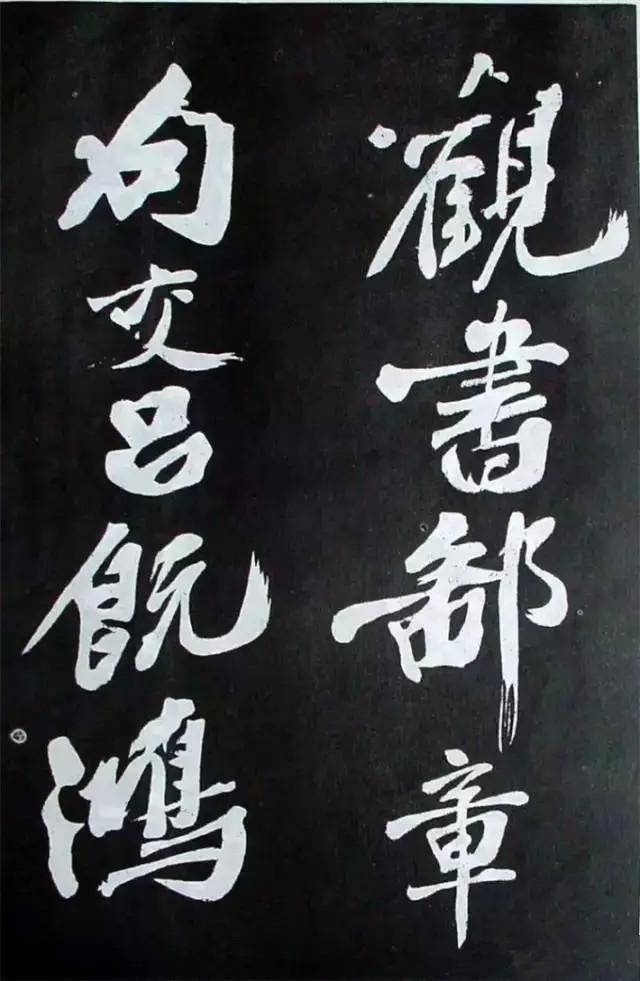 觀書鄙章
句交呂既鴻